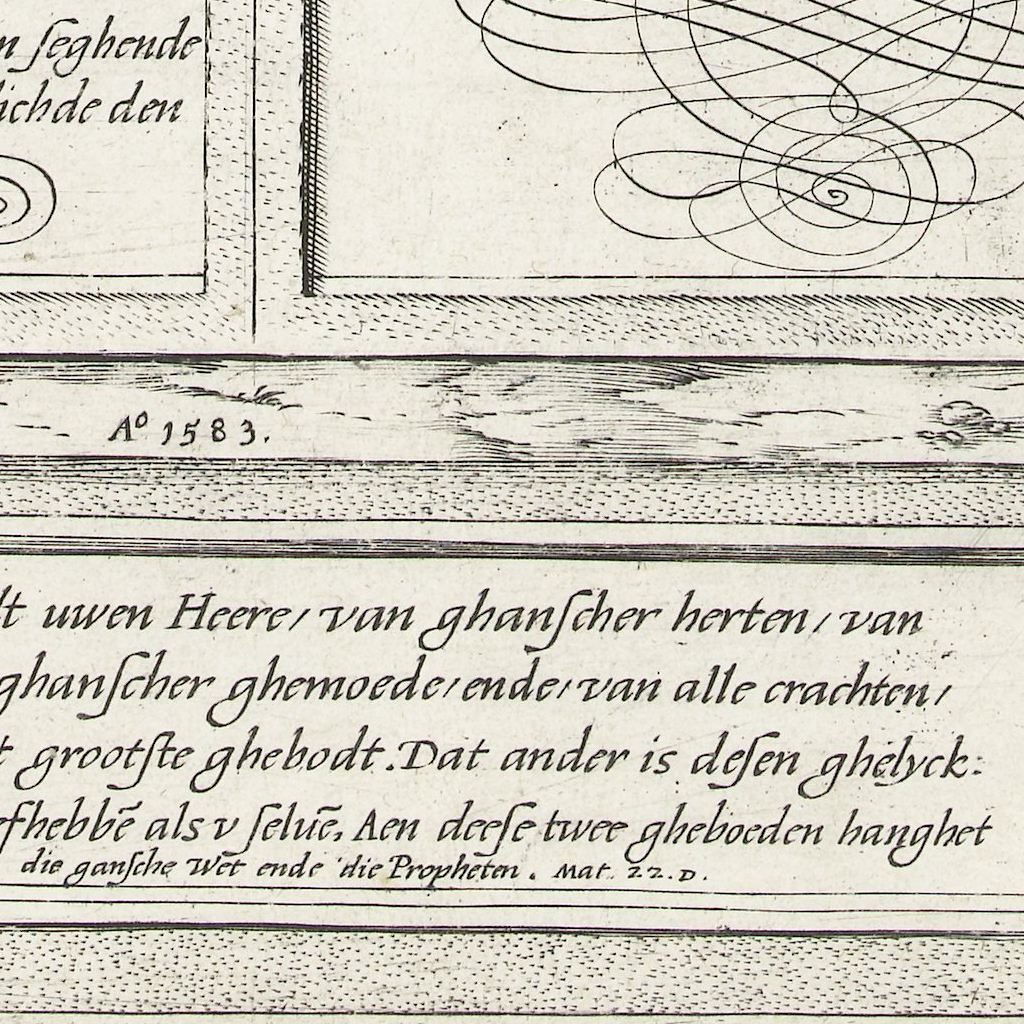 n ſeghende
ichde den
Aº 1583.
lt uwen Heere/ van ghanſcher herten/ van
ghanſcher ghemoede/ ende/ van alle crachten/
t grootſte ghebodt. Dat ander is deſen ghelyck:
efhebbē als v ſeluē. Aen deeſe twee gheboeden hanghet
die ganſche Wet ende die Propheten. Mat. 22. D.